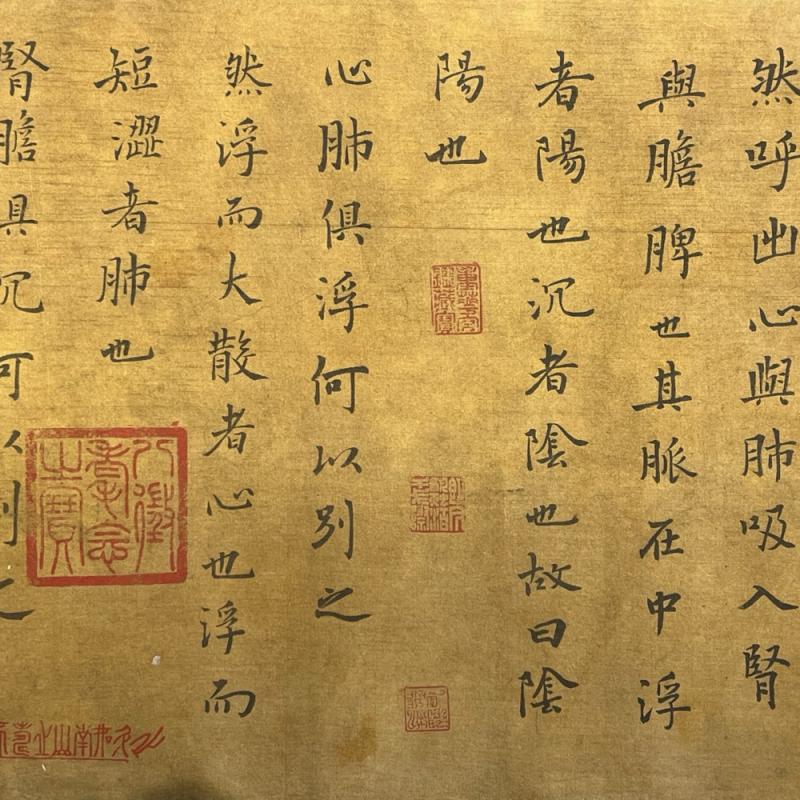 然呼出心與肺吸入腎
與膽脾也其脈在中浮
者陽也沉者陰也故曰陰
陽也
心肺俱浮何以別之
然浮而大散者心也浮而
短澀者肺也
腎膽具沉何以別之
八徵耄念之寶